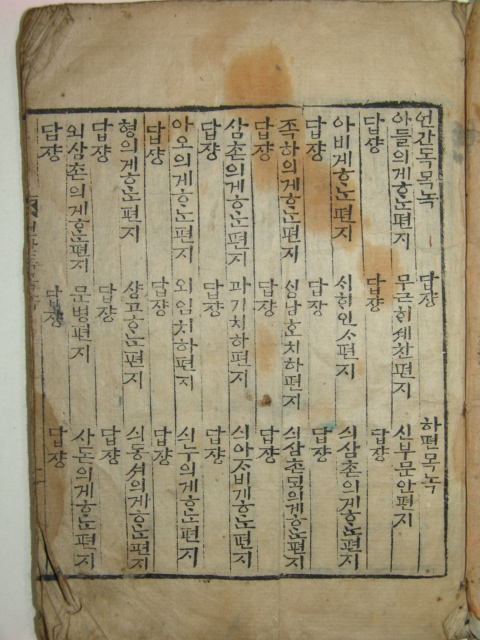 언간독목녹
아들의게ᄒᆞᄂᆞᆫ편지
답쟝
아비게ᄒᆞᄂᆞᆫ편지
답쟝
족하의게ᄒᆞᄂᆞᆫ편지
답쟝
삼촌의게ᄒᆞᄂᆞᆫ편지
답쟝
아오의게ᄒᆞᄂᆞᆫ편지
답쟝
형의게ᄒᆞᄂᆞᆫ편지
답쟝
외삼촌의게ᄒᆞᄂᆞᆫ편지
답쟝
답쟝
무근ᄒᆡ셰찬편지
답쟝
ᄉᆡᄒᆡ인ᄉᆞ편지
답장
치하편지
답쟝
치하편지
답쟝
외임치하편지
답쟝
문병편지
답쟝
하편목녹
신부문안편지
답쟝
싀삼촌의게ᄒᆞᄂᆞᆫ편지
답쟝
싀삼촌ᄃᆡᆨ의게ᄒᆞᄂᆞᆫ편지
답쟝
싀아ᄌᆞ비게ᄒᆞᄂᆞᆫ편지
답쟝
싀누의게ᄒᆞᄂᆞᆫ편지
답쟝
싀동셔의게ᄒᆞᄂᆞᆫ편지
답쟝
사돈의게ᄒᆞᄂᆞᆫ편지
답쟝